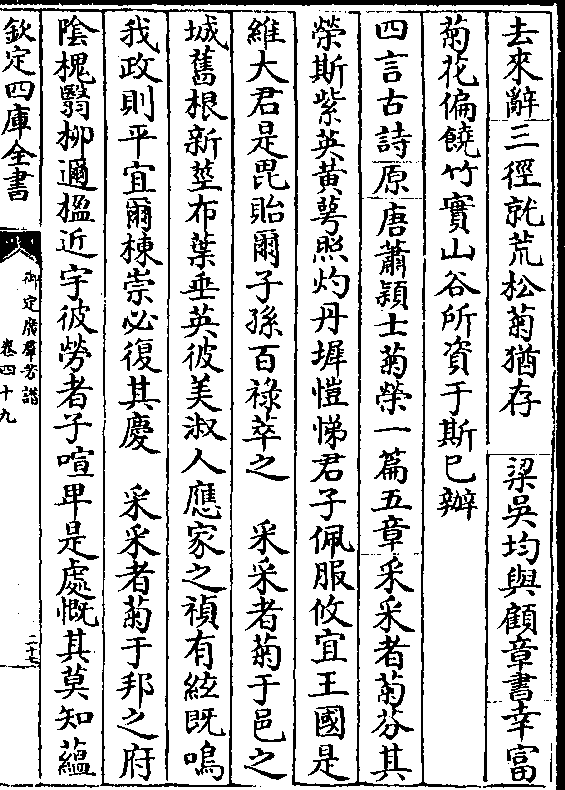 去來辭三徑就荒松菊猶存　梁吳均與顧章書幸富
菊花偏饒竹實山谷所資于斯已辦
四言古詩原唐蕭穎士菊榮一篇五章采采者菊芬其
榮斯紫英黃萼照灼丹墀愷悌君子佩服攸宜王國是
維大君是毘貽爾子孫百祿萃之　采采者菊于邑之
城舊根新莖布葉垂英彼美淑人應家之禎有絃既鳴
我政則平宜爾棟崇必復其慶　采采者菊于邦之府
陰槐翳柳邇楹近宇彼勞者子喧卑是處慨其莫知蘊
欽定四庫全書
御定廣羣芳譜
卷四十九
二十七